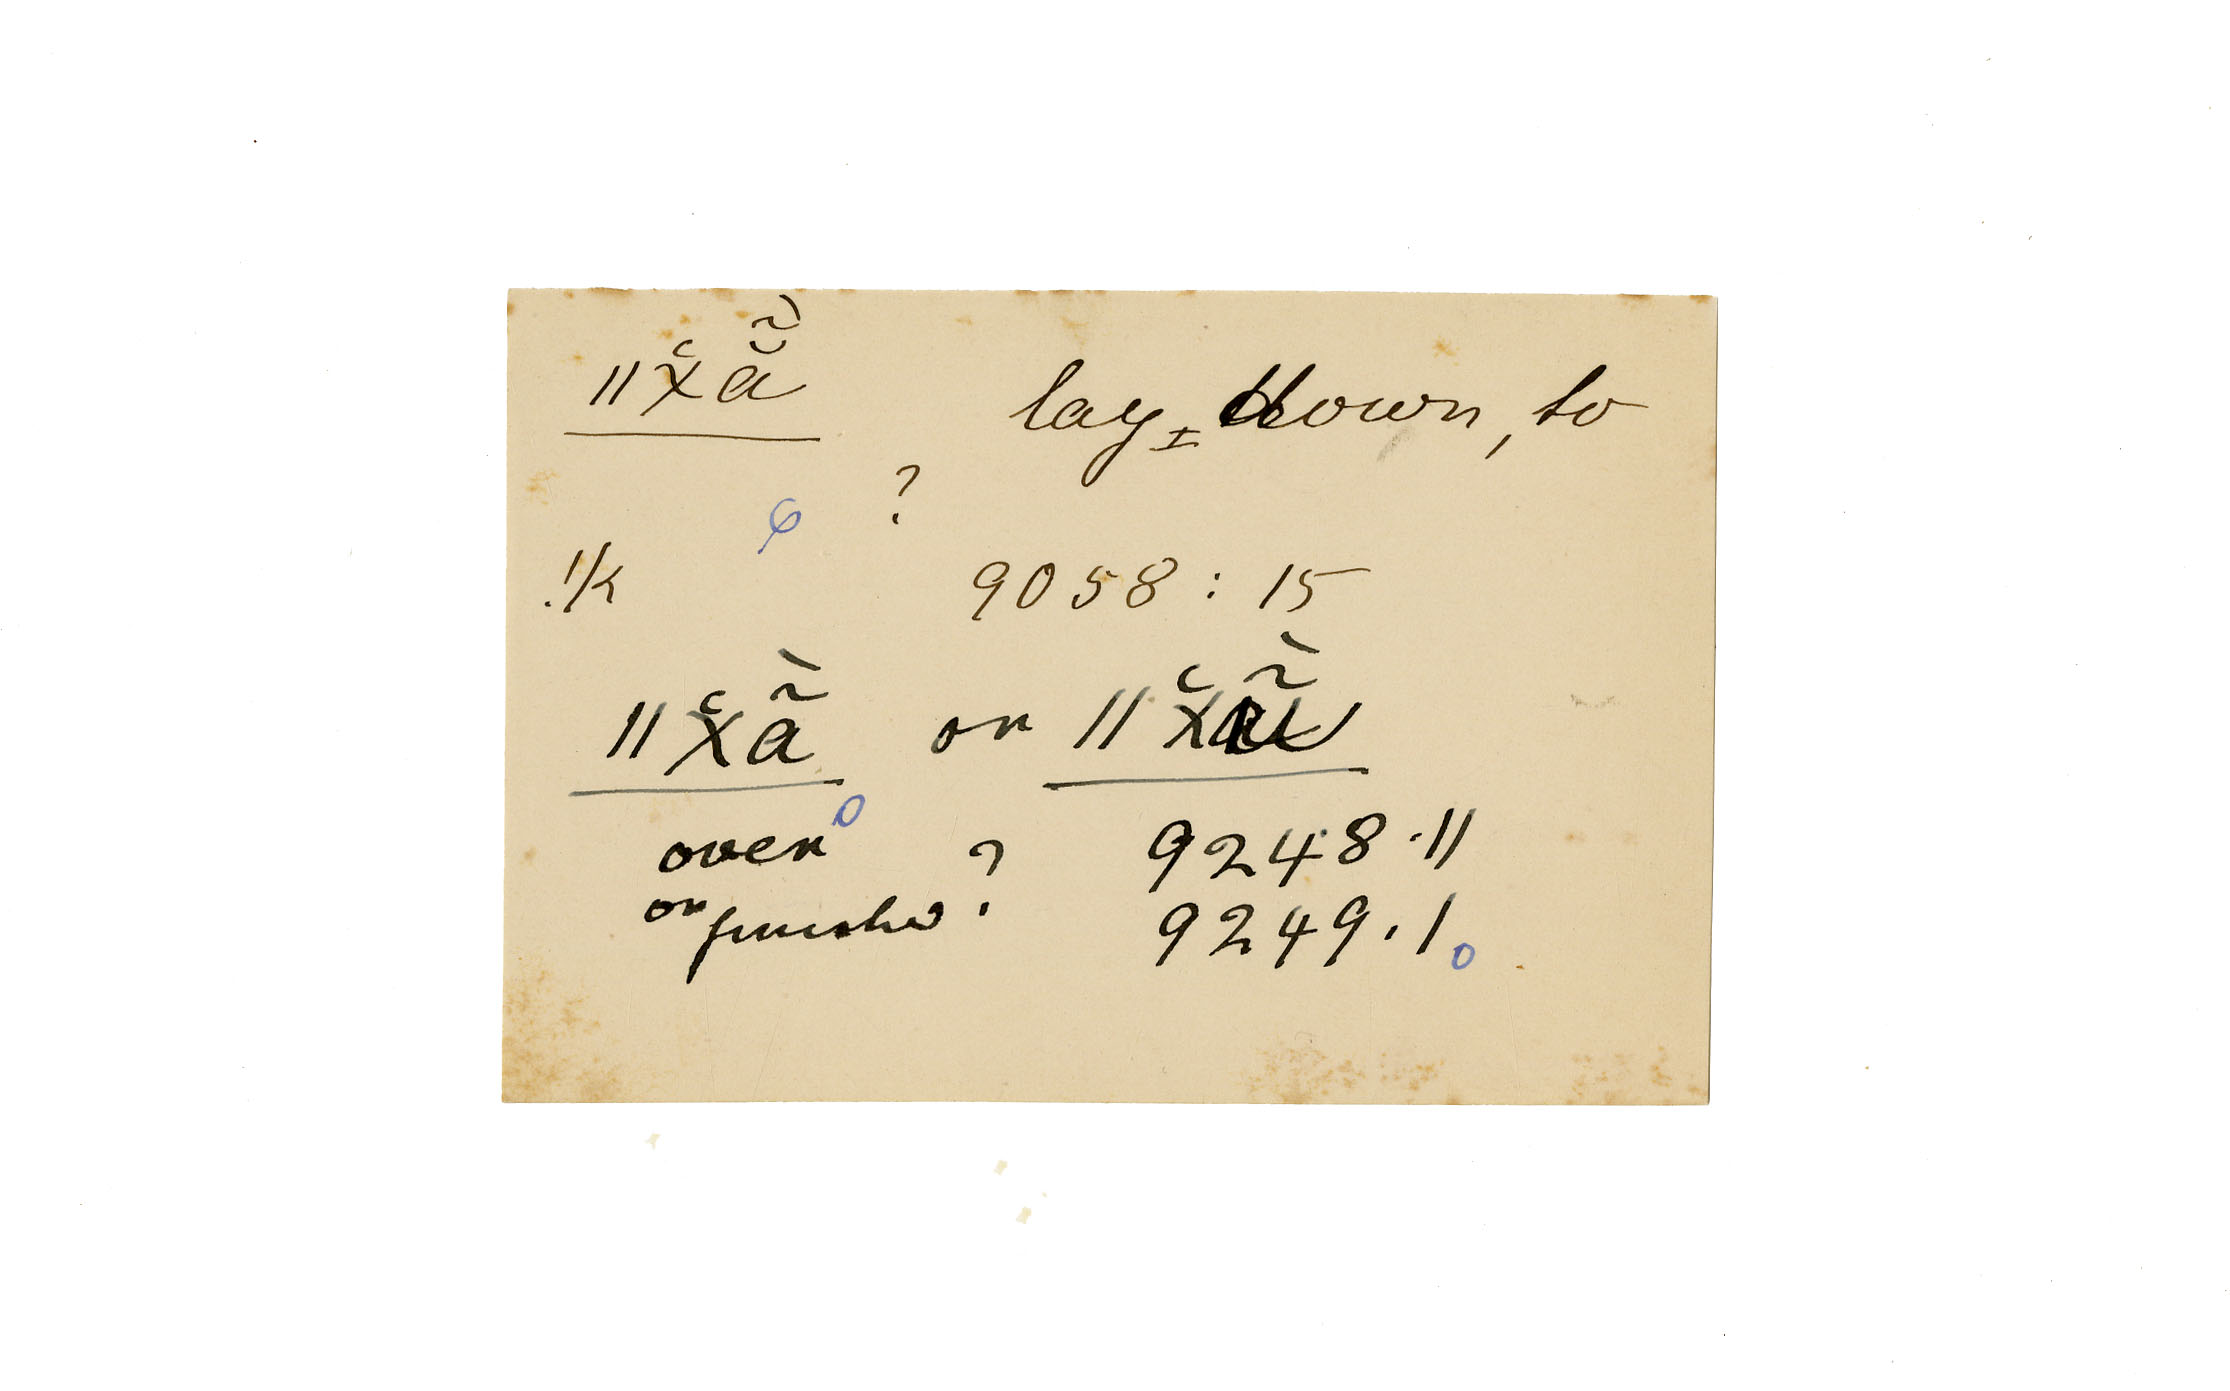 ǁx̌ã̀ lay down, to
?
!k 9058:15
ǁx̌ã̀ or
over ? 9248.11
or finished 9249.1